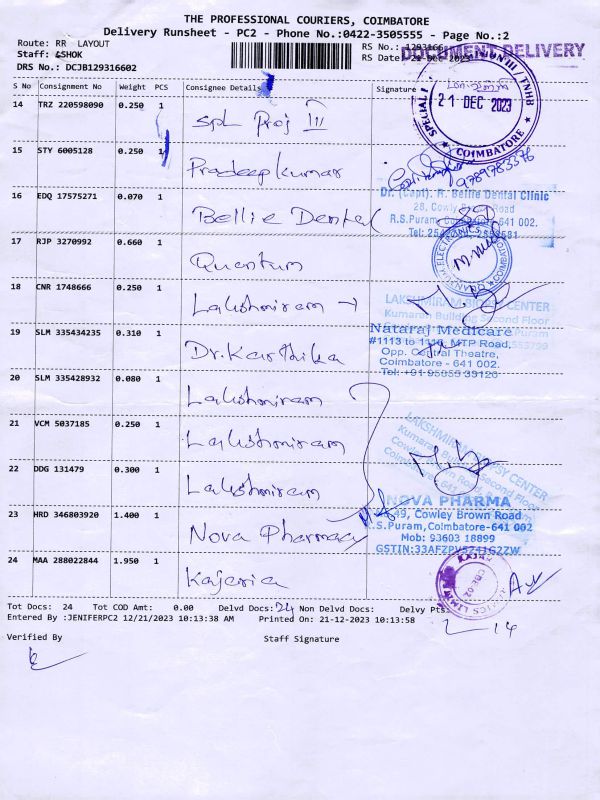 THE PROFESSIONAL COURIERS, COIMBATORE
Delivery Runsheet - PC2 - Phone No.:0422-3505555 - Page No.:2
Route: RR LAYOUT
RS No.: 1293166
DOCUMENT DELIVERY
Staff: ASHOK
RS Date: 21-Dec-2023
DRS No.: DCJB129316602
S No Consignment No Weight PCS Consignee Details Signature
14 TRZ 220598090 0.250 1 Spl Proj III
21 DEC 2023
SPECIAL
TNHB
COIMBATORE
15 STY 6005128 0.250 1 Pradeepkumar
9789783376
16 EDQ 17575271 0.070 1 Bellie Dental
Dr. (Capt). R. Bellie Dental Clinic
28, Cowly Road
R.S.Puram, 641 002.
17 RJP 3270992 0.660 1 Quantum
ELECTRONICS
COIMBATORE
18 CNR 1748666 0.250 1 Lakshmiram →
LAKSHMIRAM CENTER
Kumaran Building Second Floor
19 SLM 335434235 0.310 1 Dr. Karthika
Nataraj Medicare
#1113 to MTP Road,
Opp. Central Theatre,
Coimbatore - 641 002.
20 SLM 335428932 0.080 1 Lakshmiram
21 VCM 5037185 0.250 1 Lakshmiram
LAKSHMIRAM CENTER
Kumaran Second Floor
22 DDG 131479 0.300 1 Lakshmiram
23 HRD 346803920 1.400 1 Nova Pharmacy
NOVA PHARMA
49, Cowley Brown Road
R.S.Puram,Coimbatore-641 002
Mob: 93603 18899
24 MAA 288022844 1.950 1 Kajaria
Tot Docs: 24 Tot COD Amt: 0.00 Delvd Docs: 24 Non Delvd Docs: Delvy Pts:
Entered By :JENIFERPC2 12/21/2023 10:13:38 AM Printed On: 21-12-2023 10:13:58
14
Verified By Staff Signature